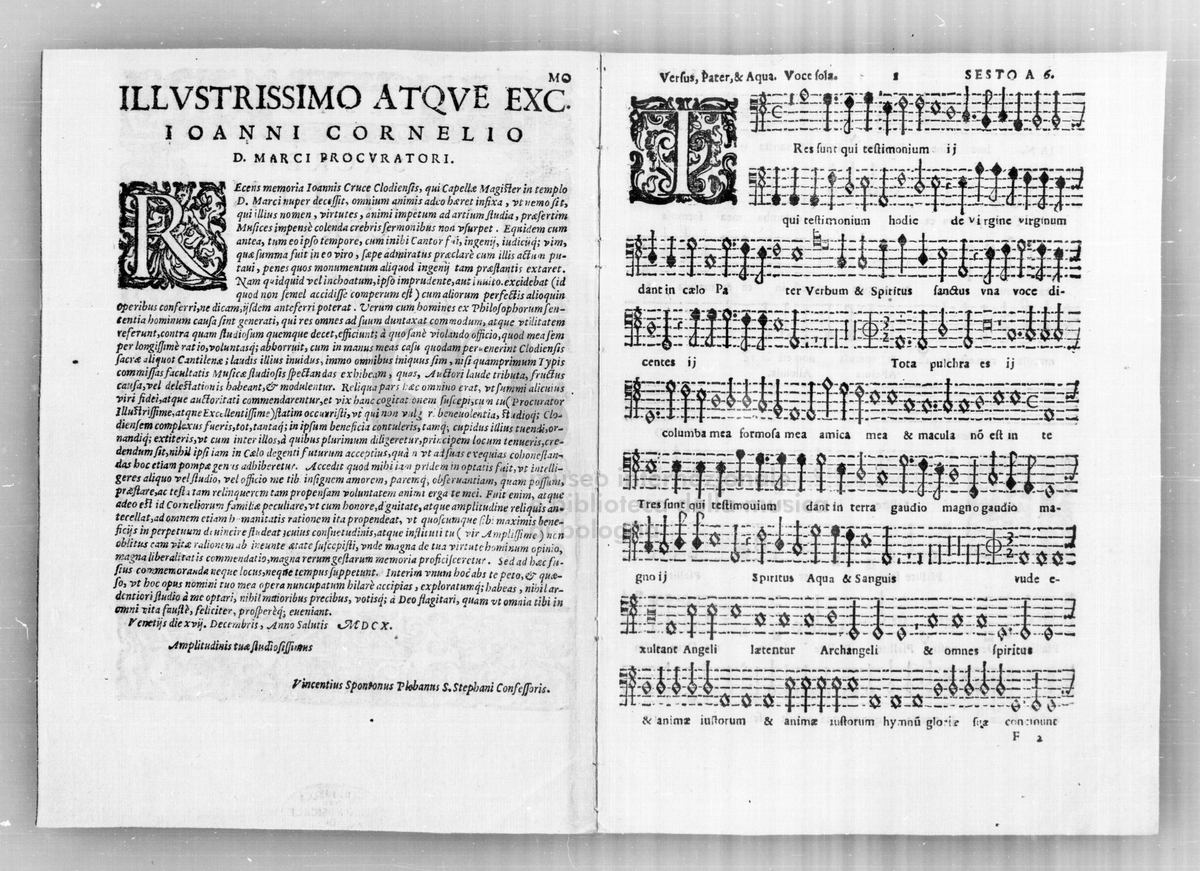 MO
ILLVSTRISSIMO ATQVE EXC.
IOANNI CORNELIO
D. MARCI PROCVRATORI.
REcens memoria Ioannis Cruce Clodiensis, qui Capellæ Magister in templo
D. Marci nuper decessit, omnium animis adeo hæret infixa, vt nemo sit,
qui illius nomen, virtutes, animi impetum ad artium studia, præsertim
Musices impensè colenda crebris sermonibus non vsurpet. Equidem cum
antea, tum eo ipso tempore, cum inibi Cantor fui, ingenij, iudicijq; vim,
quæ summa fuit in eo viro, sæpe admiratus præclarè cum illis actum pu-
taui, penes quos monumentum aliquod ingenij tam præstantis extaret.
Nam quidquid vel inchoatum, ipso imprudente, aut inuito excidebat (id
quod non semel accidisse compertum est) cum aliorum perfectis alioquin
operibus conferri, ne dicam, ijsdem anteferri poterat. Verum cum homines ex Philosophorum sen-
tentia hominum causa sint generati, qui res omnes ad suum duntaxat commodum, atque vtilitatem
referunt, contra quam studiosum quemque decet, efficiunt; à quo sanè violando officio, quod mea sem
per longissimè ratio, voluntasq; abhorruit, cum in manus meas casu quodam peruenerint Clodiensis
sacræ aliquot Cantilenæ; laudis illius inuidus, immo omnibus iniquus sim, nisi quamprimum Typis
commissas facultatis Musicæ studiosis spectandas exhibeam, quas, Auctori laude tributa, fructus
causa, vel delectationis habeant, & modulentur. Reliqua pars hæc omnino erat, vt summi alicuius
viri fidei, atque auctoritati commendarentur, et vix hanc cogitationem suscepi, cum tu (Procurator
Illustrissime, atque Excellentissime) statim occurristi, vt qui non vulgari beneuolentia, studioq; Clo-
diensem complexus fueris, tot, tantaq; in ipsum beneficia contuleris, tamq; cupidus illius tuendi, or-
nandiq; extiteris, vt cum inter illos, à quibus plurimum diligeretur, principem locum tenueris, cre-
dendum sit, nihil ipsi iam in Cælo degenti futurum acceptius, quàm vt ad suas exequias cohonestan-
das hoc etiam pompæ genus adhiberetur. Accedit quod mihi iam pridem in optatis fuit, vt intelli-
geres aliquo vel studio, vel officio me tib insignem amorem, paremq; obseruantiam, quam possum,
præstare, ac testatam relinquerem tam propensam voluntatem animi erga te mei. Fuit enim, atque
adeo est id Corneliorum familiæ peculiare, vt cum honore, dignitate, atque amplitudine reliquis an-
tecellat, ad omnem etiam humanitatis rationem ita propendeat, vt quoscumque sibi maximis bene-
ficijs in perpetuum deuincire studeat; cuius consuetudinis, atque instituti tu (vir Amplissime) non
oblitus eam vitæ rationem ab ineunte ætate suscepisti, vnde magna de tua virtute hominum opinio,
magna liberalitatis commendatio, magna rerum gestarum memoria proficisceretur. Sed ad hæc fu-
sius commemoranda neque locus, neque tempus suppetunt. Interim vnum hoc abs te peto, & quæ-
so, vt hoc opus nomini tuo mea opera nuncupatum hilarè accipias, exploratumq; habeas, nihil ar-
dentiori studio à me optari, nihil maioribus precibus, votisq; à Deo flagitari, quam vt omnia tibi in
omni vita faustè, feliciter, prosperèq; eueniant.
Venetijs die xvij. Decembris, Anno Salutis MDCX.
Amplitudinis tuæ studiosissimus
Vincentius Spontonus Plebanus S. Stephani Confessoris.
Versus, Pater, & Aqua. Voce sola. 1 SESTO A 6.
TRes sunt qui testimonium ij
qui testimonium hodie de virgine virginum
dant in cælo Pa ter Verbum & Spiritus sanctus vna voce di-
centes ij Tota pulchra es ij
columba mea formosa mea amica mea & macula nõ est in te
Tres sunt qui testimouium dant in terra gaudio magno gaudio ma-
gno ij Spiritus Aqua & Sanguis vude e-
xultant Angeli lætentur Archangeli & omnes spiritus
& animæ iustorum & animæ iustorum hymnũ gloriæ suæ concinunt
F 2